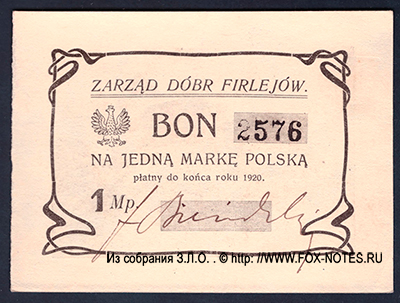 ZARZĄD DÓBR FIRLEJÓW.
BON 2576
NA JEDNĄ MARKĘ POLSKĄ
płatny do końca roku 1920.
1 Mp.
Из собрания З.Л.О. . © http://WWW.FOX-NOTES.RU